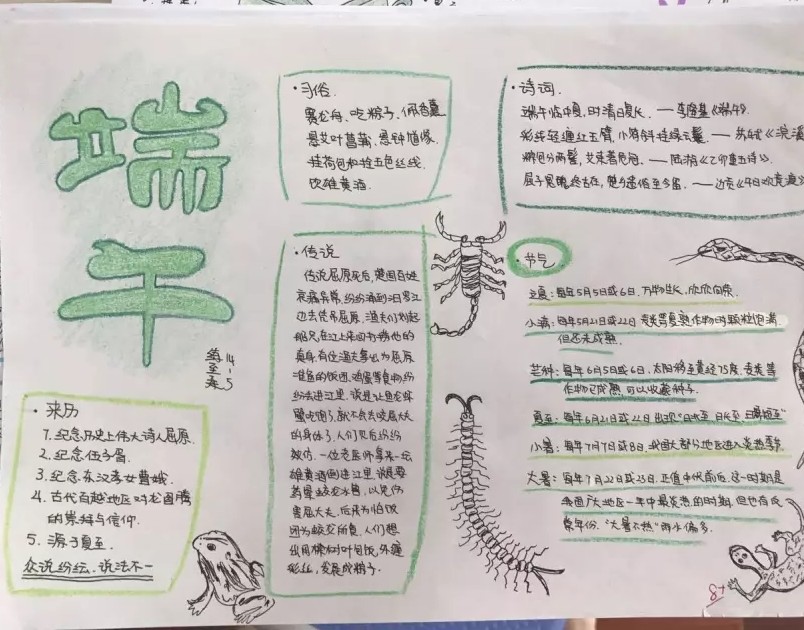 端午
14-5
·来历
1.纪念历史上伟大诗人屈原.
2.纪念伍子胥.
3.纪念东汉孝女曹娥.
4.古代百越地区对龙图腾
的崇拜与信仰.
5.源于夏至.
众说纷纭.说法不一
·习俗
赛龙舟、吃粽子、佩香囊
悬艾叶菖蒲、悬钟馗像.
挂荷包和拴五色丝线.
饮雄黄酒.
·传说
传说屈原死后,楚国百姓
哀痛异常,纷纷涌到汨罗江
边去凭吊屈原.渔夫们划起
船只,在江上来回打捞他的
真身.有位渔夫拿出为屈原
准备的饭团.鸡蛋等食物纷
纷丢进江里.说是让鱼龙虾
蟹吃饱了,就不会去咬屈大夫
的身体了.人们见后纷纷
效仿.一位老医师拿来一坛
雄黄酒倒进江里.说是要
药晕蛟龙水兽,以免伤
害屈大夫.后来为怕饭
团为蛟龙所食.人们想
出用楝树叶包饭,外缠
彩丝,发展成粽子.
·诗词
端午临中夏,时清日复长.——李隆基《端午》
彩线轻缠红玉臂,小符斜挂绿云鬟.——苏轼《浣溪
粽包分两髻,艾束著危冠.——陆游《乙卯重五诗》.
屈子冤魂终古在,楚乡遗俗至今留.——边贡《午日观竞渡》
·节气
立夏:每年5月5日或6日.万物生长,欣欣向荣.
小满:每年5月21日或22日麦类等夏熟作物的颗粒饱满
但还未成熟.
芒种:每年6月5日或6日.太阳移至黄经75度.麦类等
作物已成熟,可以收藏种子.
夏至:每年6月21日或22日出现"日长至
小暑:每年7月7日或8日.我国大部分地区进入炎热季节
大暑:每年7月22日或23日.正值中伏前后.这一时期是
我国广大地区一年中最炎热的时期.但也有反
常年份."大暑不热"雨水偏多.